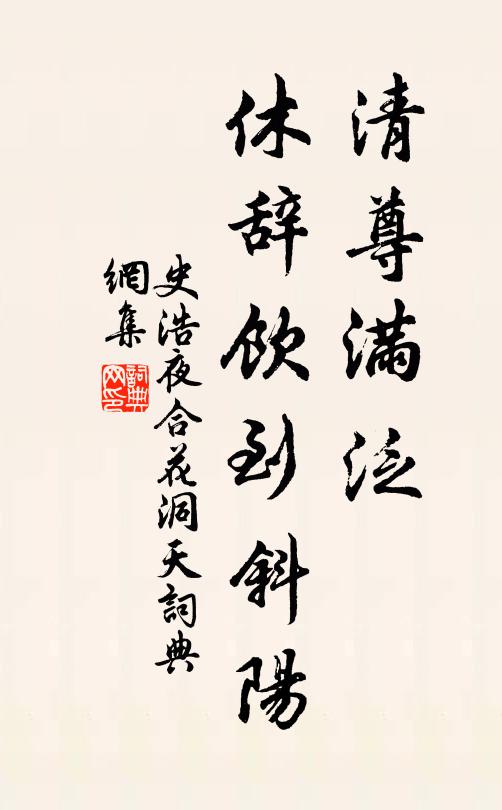 清尊滿泛
休辞飲到斜陽
史浩夜合花洞天詞典
網集
詞典網印